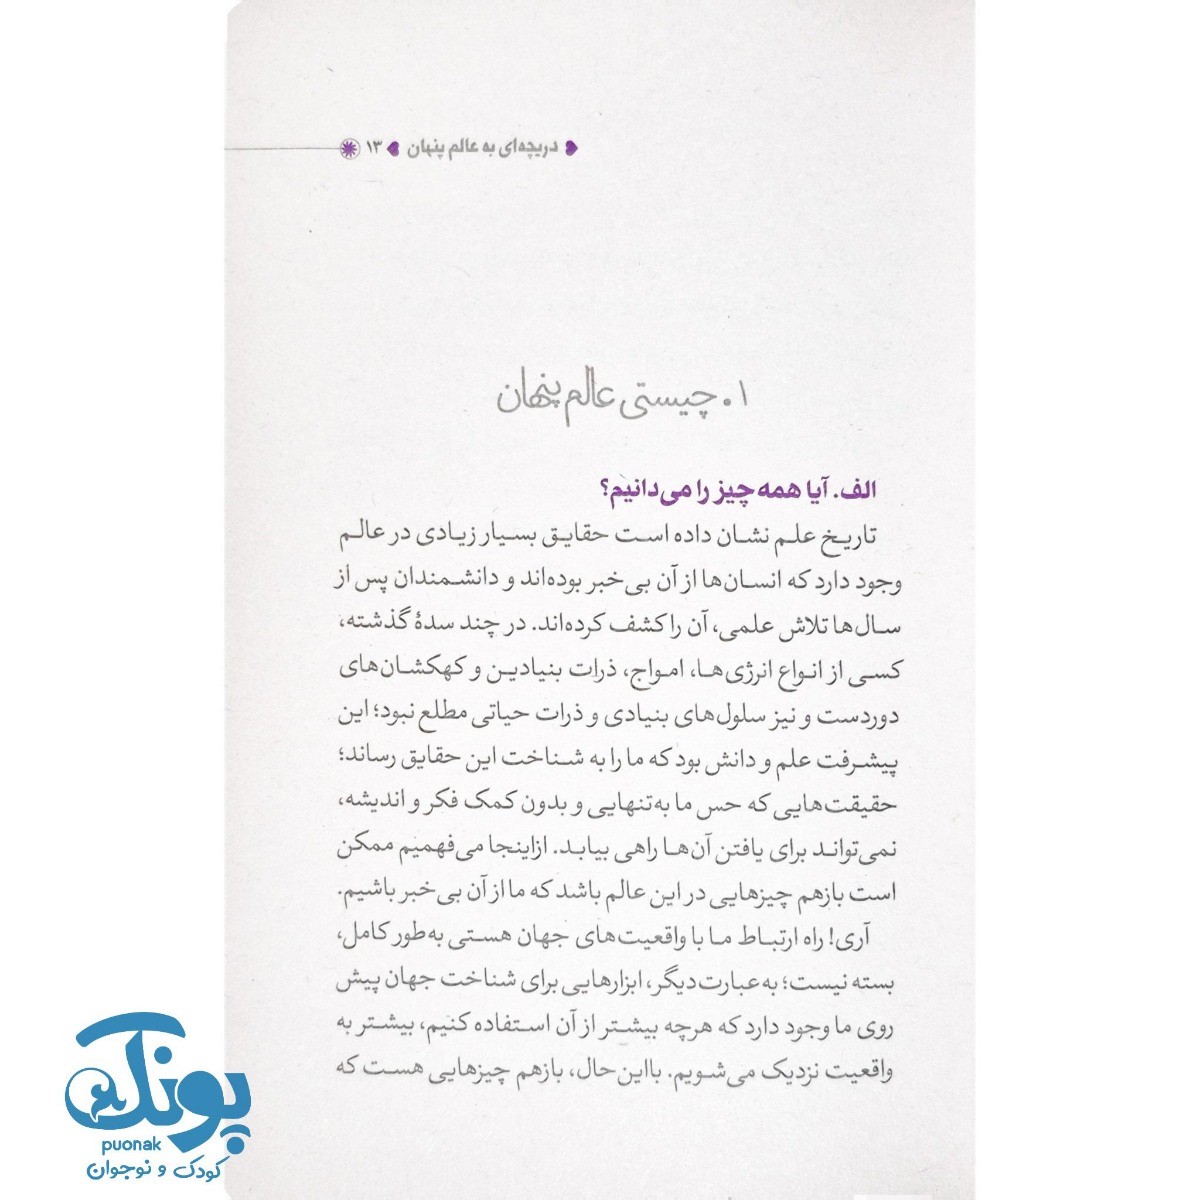 دریچه‌ای به عالم پنهان ۱۳
۱. چیستی عالم پنهان
الف. آیا همه چیز را می‌دانیم؟
تاریخ علم نشان داده است حقایق بسیار زیادی در عالم
وجود دارد که انسان‌ها از آن بی‌خبر بوده‌اند و دانشمندان پس از
سال‌ها تلاش علمی، آن را کشف کرده‌اند. در چند سدهٔ گذشته،
کسی از انواع انرژی‌ها، امواج، ذرات بنیادین و کهکشان‌های
دوردست و نیز سلول‌های بنیادی و ذرات حیاتی مطلع نبود؛ این
پیشرفت علم و دانش بود که ما را به شناخت این حقایق رساند؛
حقیقت‌هایی که حس ما به‌تنهایی و بدون کمک فکر و اندیشه،
نمی‌تواند برای یافتن آن‌ها راهی بیابد. ازاینجا می‌فهمیم ممکن
است بازهم چیزهایی در این عالم باشد که ما از آن بی‌خبر باشیم.
آری! راه ارتباط ما با واقعیت‌های جهان هستی به‌طور کامل،
بسته نیست؛ به‌عبارت‌دیگر، ابزارهایی برای شناخت جهان پیش
روی ما وجود دارد که هرچه بیشتر از آن استفاده کنیم، بیشتر به
واقعیت نزدیک می‌شویم. بااین‌حال، بازهم چیزهایی هست که
پونک
puonak
کودک و نوجوان